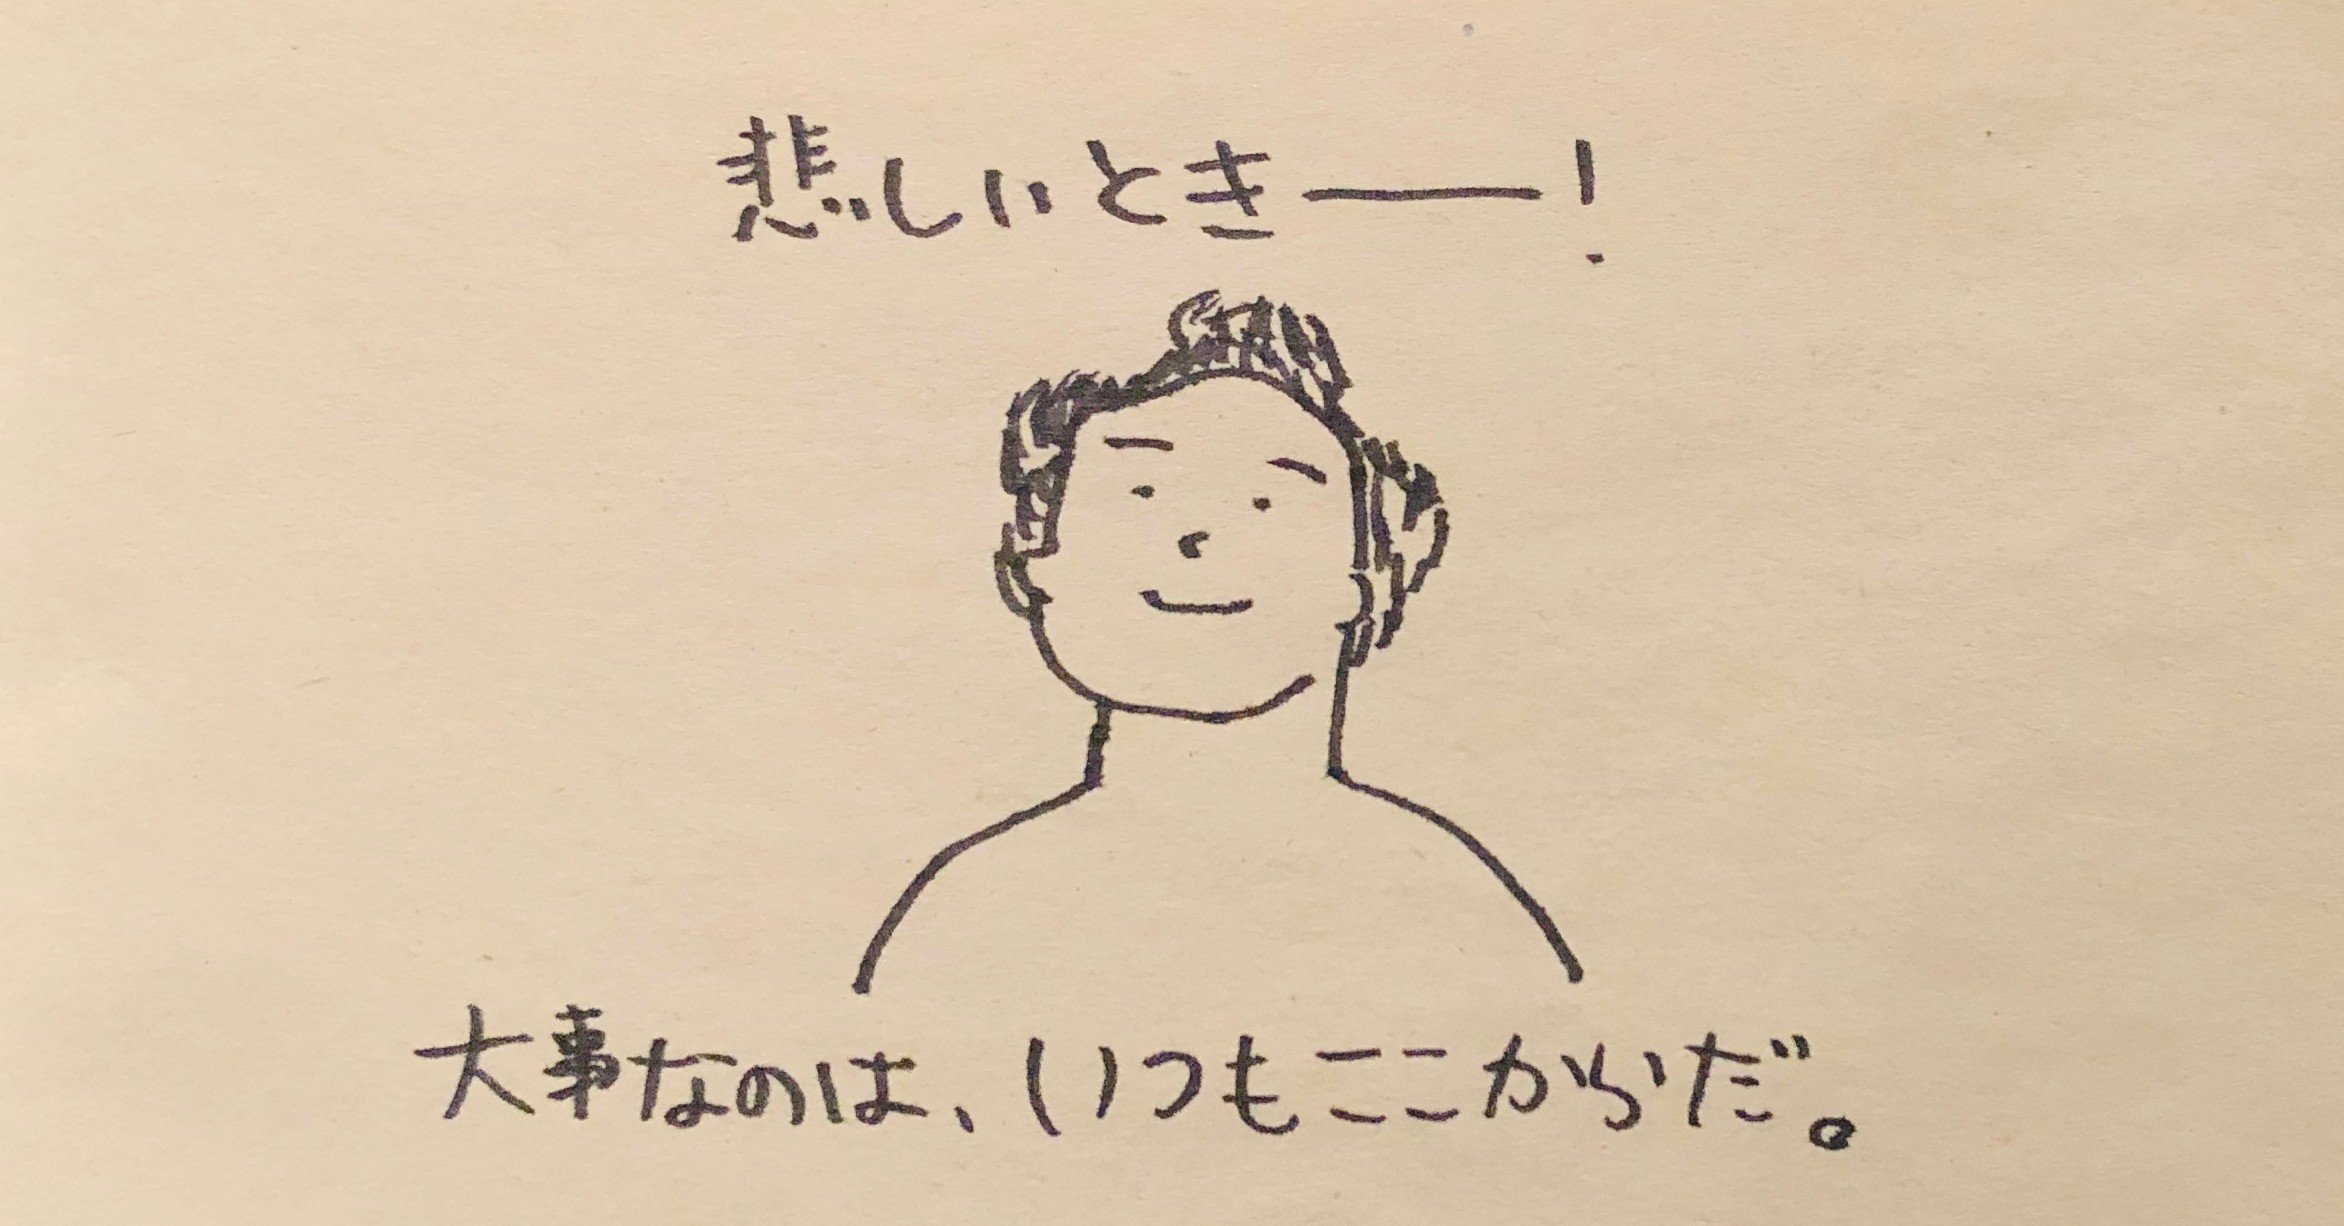 悲しいときー！
大事なのは、いつもここからだ。